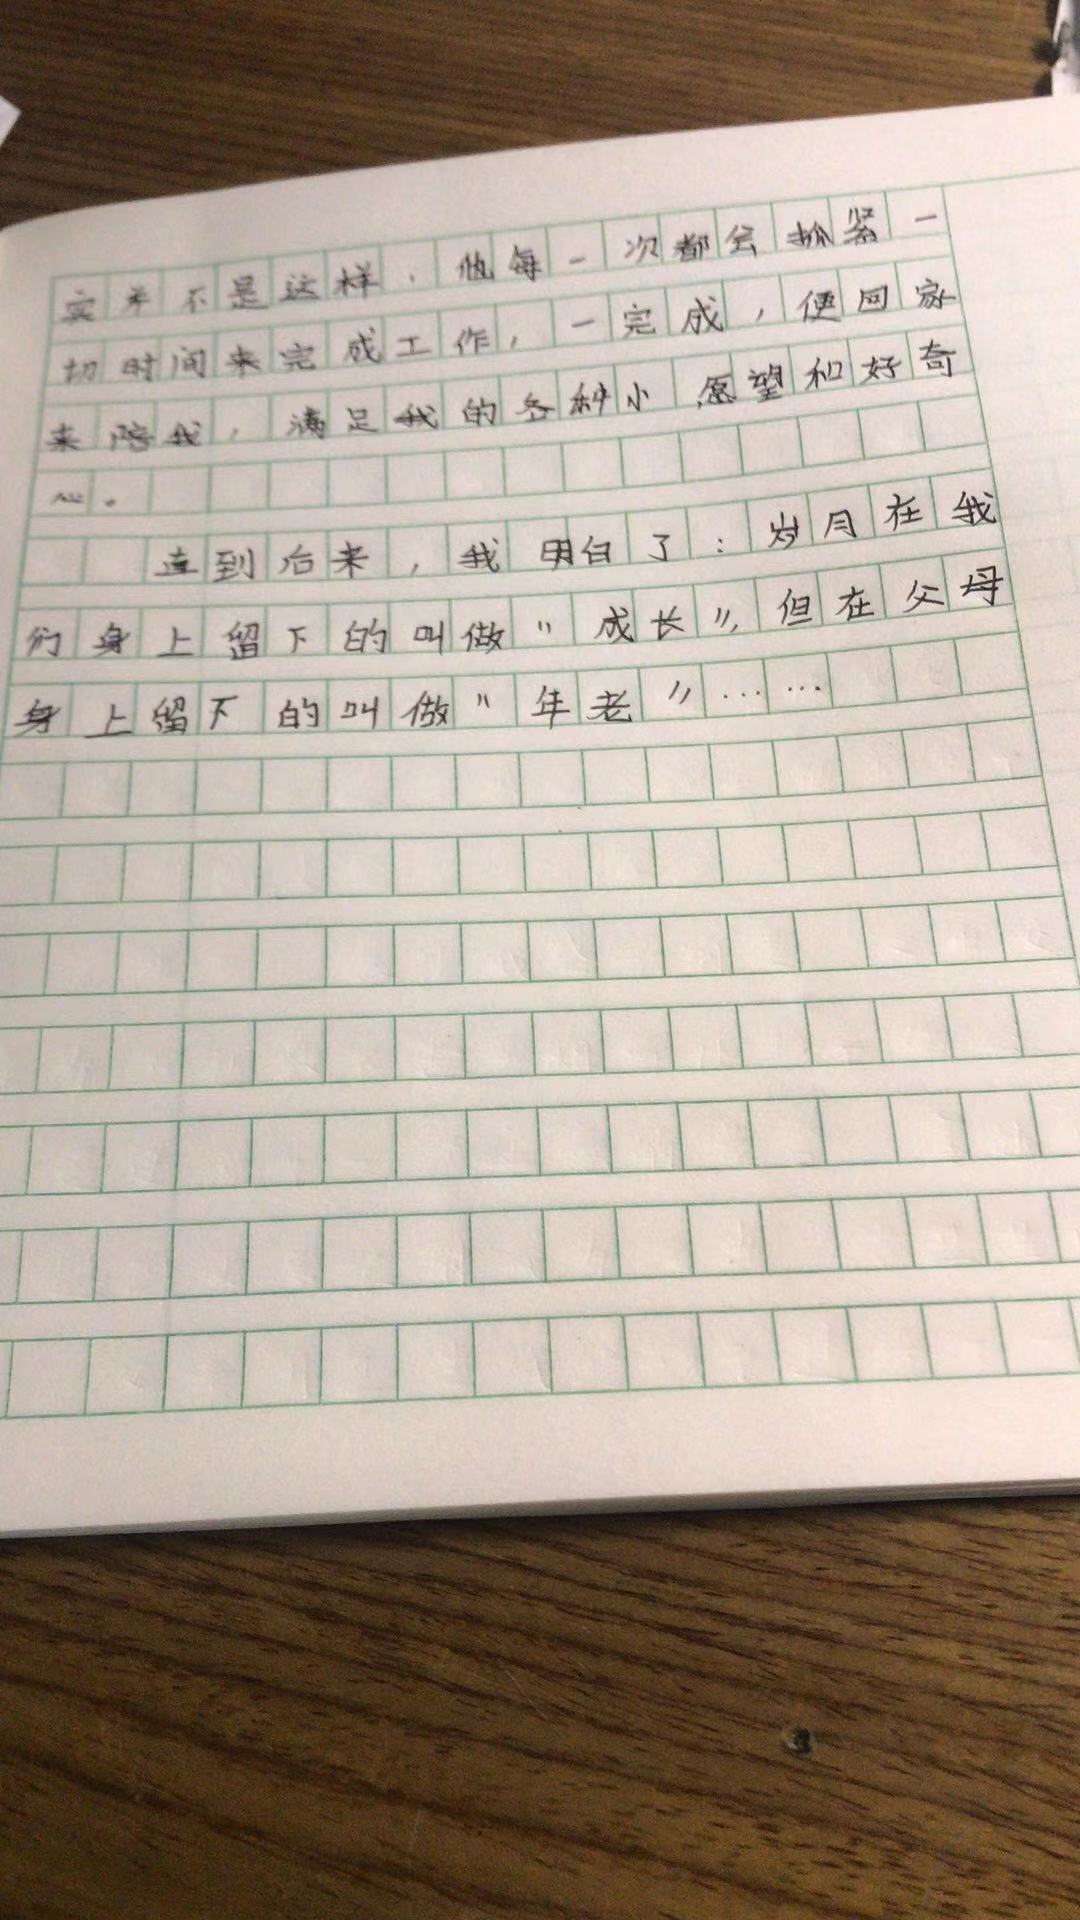 实并不是这样,他每一次都会抓紧一
切时间来完成工作,一完成,便回家
来陪我,满足我的各种小愿望和好奇
心。
直到后来,我明白了:岁月在我
们身上留下的叫做“成长”,但在父母
身上留下的叫做“年老”……